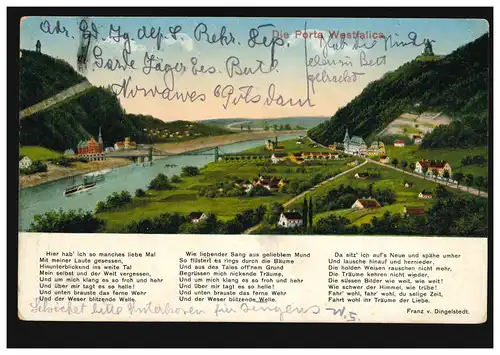 Die Porta Westfalica.
Adr. Jg. dep. L. Rekr. Dep.
Garde Jäger Ers. Bat.
Nowawes b Potsdam
Hab die Kinder
zu Bett
gebracht
Hier hab' ich so manches liebe Mal
Mit meiner Laute gesessen,
Hinunterblickend ins weite Tal
Mein selbst und der Welt vergessen,
Und um mich klang es so froh und hehr
Und über mir tagt es so helle!
Und unten brauste das ferne Wehr
Und der Weser blitzende Welle.
Wie liebender Sang aus geliebtem Mund
So flüstert es rings durch die Bäume
Und aus des Tales off'nem Grund
Begrüssen mich nickende Träume,
Und um mich klang es so froh und hehr
Und über mir tagt es so helle!
Und unten brauste das ferne Wehr
Und der Weser blitzende Welle.
Da sitz' ich auf's Neue und spähe umher
Und lausche hinauf und hernieder,
Die holden Weisen rauschen nicht mehr,
Die Träume kehren nicht wieder,
Die süssen Bilder wie weit, wie weit!
Wie schwer der Himmel, wie trübe!
Fahr' wohl, fahr' wohl, du selige Zeit,
Fahrt wohl ihr Träume der Liebe.
Franz v. Dingelstedt.
bitte